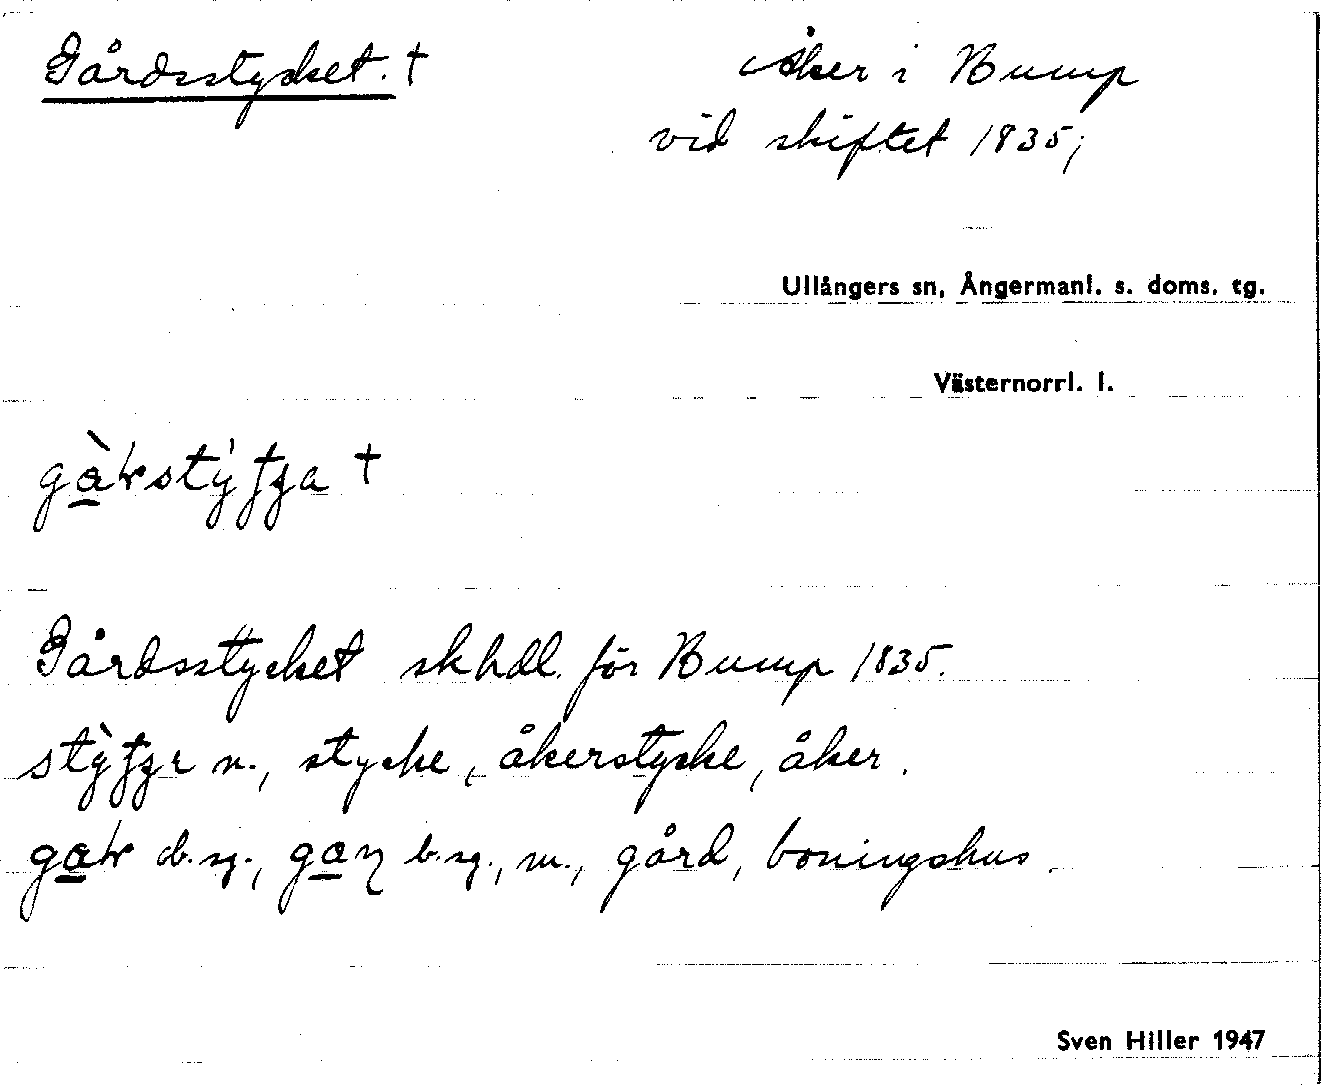 Gårdsstycket. †
Åker i Bump
vid skiftet 1835;
Ullångers sn, Ångermanl. s. doms. tg.
Västernorrl. l.
Gårdsstycket skhdl. för Bump 1835.
n., stycke, åkerstycke, åker.
ob. sg., b. sg., m., gård, boningshus.
Sven Hiller 1947